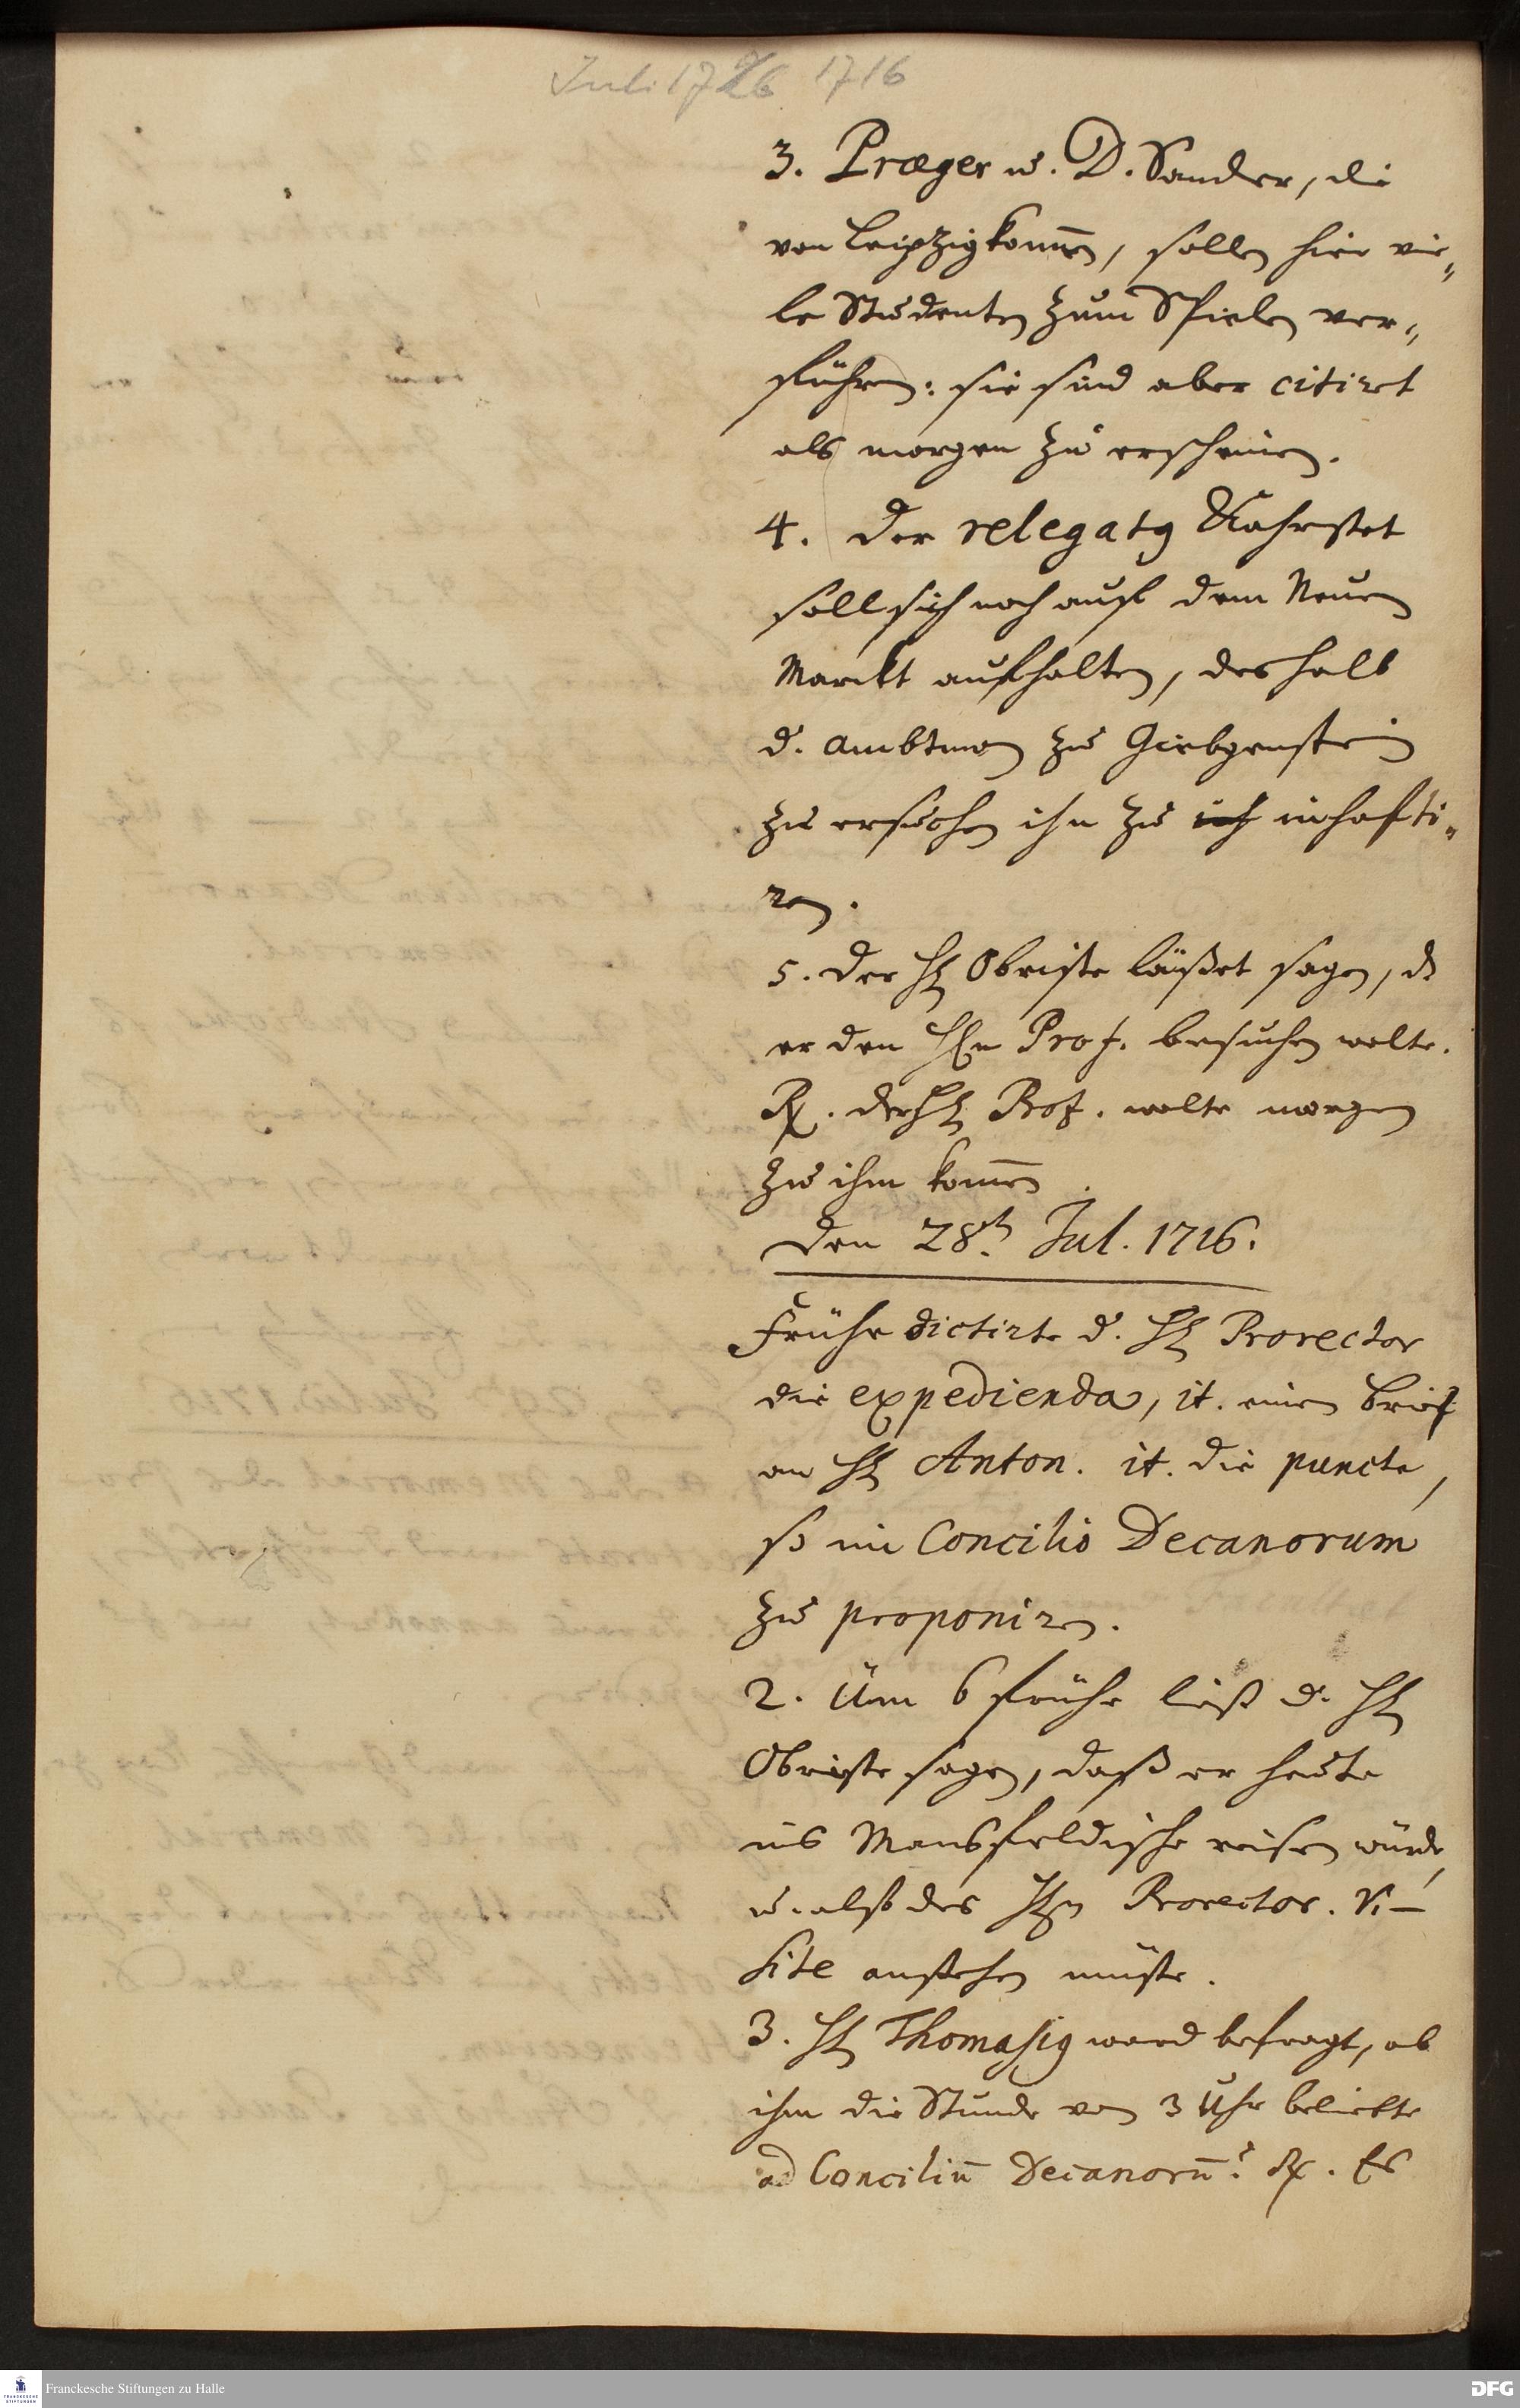 Juli 1726 1716
3. Præger u. D. Sander, die
von Leipzig kom̄en, sollen hier vie-
le Studenten zum Spielen ver-
führen: sie sind aber citiret
als morgen zu erscheinen.
4. Der relegatus Kahrstet
soll sich noch auf dem Neuen
Marckt aufhalten, deshalb
d. Ambtman zu Giebgenstein
zu ersuchen ihn zu inhafti-
ren.
5. Der H. Obriste läßet sagen, dß
er den Hn Prof. besuchen wolte.
Rx. der H. Prof. wolte morgen
zu ihm kom̄en.
Den 28t. Jul. 1716.
Frühe dictirte d. H. Prorector
die expedienda, it. einen Brief
an H. Anton. it. die puncte,
so im Concilio Decanorum
zu proponiren.
2. Um 6 frühe ließ d. H.
Obriste sagen, daß er heute
ins Mansfeldische reisen würde,
u. also des Hn Prorector. Vi-
site anstehen müste.
3. H. Thomasius ward befragt, ob
ihm die Stunde von 3 Uhr beliebte
ad Conciliū Decanorū? Rx. Es
Franckesche Stiftungen zu Halle
DFG